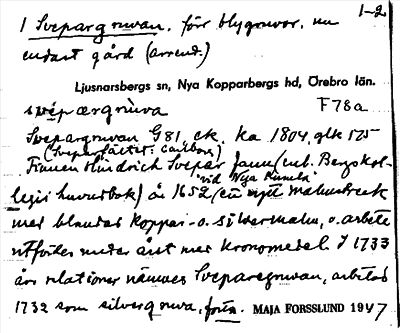 1-2
1 Svepargruvan, förr blygruvor, nu
endast gård (arrend.)
Ljusnarsbergs sn, Nya Kopparbergs hd, Örebro län.
svèpærgrùva F 78a
Svepargruvan G81, ek. ka 1804, glk 175
(Sveparfältet: Carlberg)
Finnen Hindrich Svepar fann (enl. Bergskol-
vid Nya Kumla
legii huvudbok) år 1652 (en nytt malmstreek
med blandad koppar- o. silvermalm, o. arbete
utfördes under året med kronomedel. I 1733
års relationer nämnes Sveparegruvan, arbetad
1732 som silvergruva, förra. MAJA FORSSLUND 1947